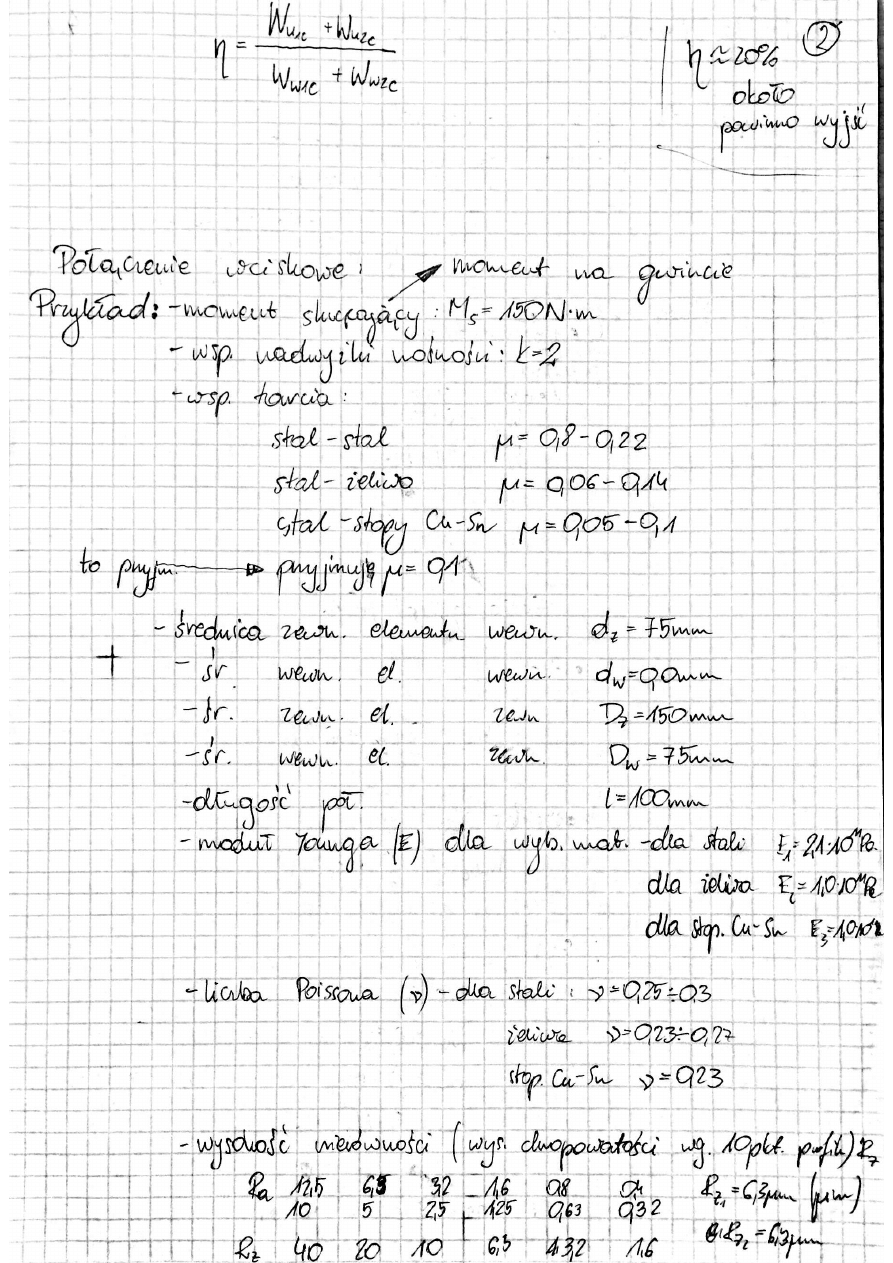 η = (Wu1c + Wu2c) / (Ww1c + Ww2c)
η ≈ 20%
około
powinno wyjść
2
Połączenie wciskowe: moment na gwincie
Przykład: - moment skręcający: Ms = 150 N·m
- wsp. nadwyżki nośności: k=2
- wsp. tarcia:
stal - stal μ = 0,8 - 0,22
stal - żeliwo μ = 0,06 - 0,14
stal - stopy Cu-Sn μ = 0,05 - 0,1
to przyjm. przyjmuję μ = 0,1
- średnica zewn. elementu wewn. dz = 75mm
- śr. wewn. el. wewn. dw = 0,0mm
- śr. zewn. el. zewn Dz = 150mm
- śr. wewn. el. zewn. Dw = 75mm
- długość poł. l = 100mm
- moduł Younga (E) dla wyb. mat. - dla stali E1 = 2,1·10¹¹Pa.
dla żeliwa E2 = 1,0·10¹¹Pa
dla stop. Cu-Sn E3 = 1,0·10
- liczba Poissona (ν) - dla stali: ν = 0,25 ÷ 0,3
żeliwa ν = 0,23 ÷ 0,27
stop. Cu-Sn ν = 0,23
- wysokość nierówności (wys. chropowatości wg. 10pkt. profilu) Rz
Ra 12,5 6,3 3,2 1,6 0,8 0,4 Rz1 = 6,3μm (μm)
10 5 2,5 1,25 0,63 0,32
Rz2 = 6,3μm
Rz 40 20 10 6,3 3,2 1,6